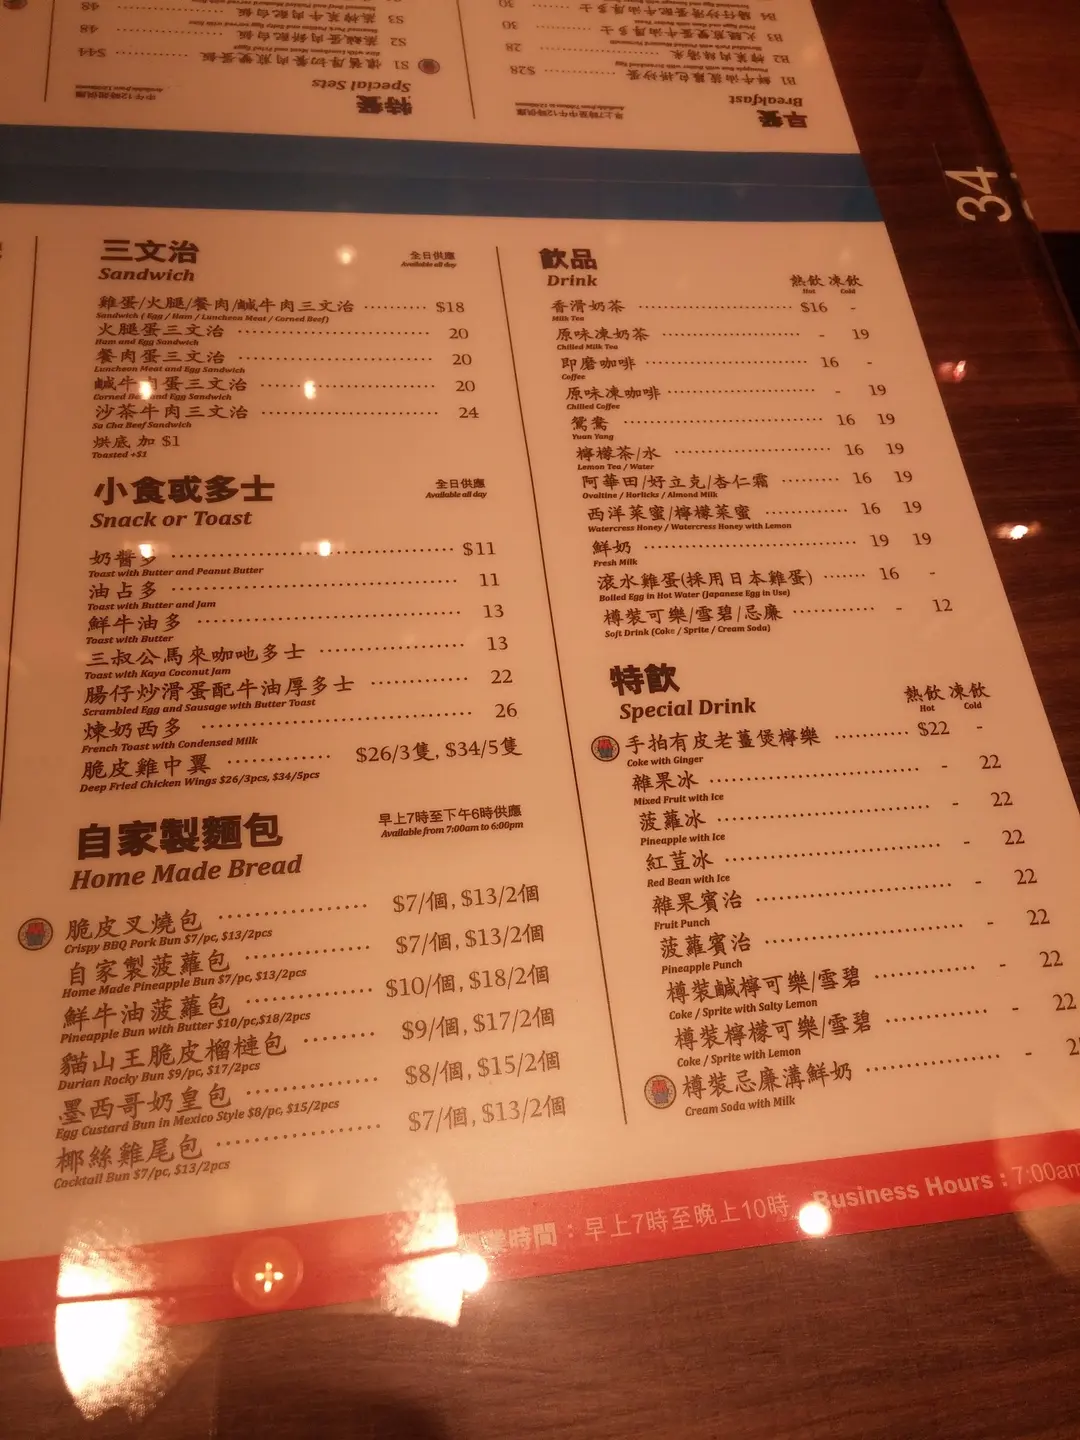 三文治
Sandwich
全日供應
Available all day
雞蛋/火腿/餐肉/鹹牛肉三文治 ········· $18
Sandwich ( Egg / Ham / Luncheon Meat / Corned Beef)
火腿蛋三文治 ········· 20
Ham and Egg Sandwich
餐肉蛋三文治 ········· 20
Luncheon Meat and Egg Sandwich
鹹牛肉蛋三文治 ········· 20
Corned Beef and Egg Sandwich
沙茶牛肉三文治 ········· 24
Sa Cha Beef Sandwich
烘底 加 $1
Toasted +$1
小食或多士
Snack or Toast
全日供應
Available all day
奶醬多 ········· $11
Toast with Butter and Peanut Butter
油占多 ········· 11
Toast with Butter and Jam
鮮牛油多 ········· 13
Toast with Butter
三叔公馬來咖吔多士 ········· 13
Toast with Kaya Coconut Jam
腸仔炒滑蛋配牛油厚多士 ········· 22
Scrambled Egg and Sausage with Butter Toast
煉奶西多 ········· 26
French Toast with Condensed Milk
脆皮雞中翼 ········· $26/3隻, $34/5隻
Deep Fried Chicken Wings $26/3pcs, $34/5pcs
自家製麵包
Home Made Bread
早上7時至下午6時供應
Available from 7:00am to 6:00pm
脆皮叉燒包 ········· $7/個, $13/2個
Crispy BBQ Pork Bun $7/pc, $13/2pcs
自家製菠蘿包 ········· $7/個, $13/2個
Home Made Pineapple Bun $7/pc, $13/2pcs
鮮牛油菠蘿包 ········· $10/個, $18/2個
Pineapple Bun with Butter $10/pc,$18/2pcs
貓山王脆皮榴槤包 ········· $9/個, $17/2個
Durian Rocky Bun $9/pc, $17/2pcs
墨西哥奶皇包 ········· $8/個, $15/2個
Egg Custard Bun in Mexico Style $8/pc, $15/2pcs
椰絲雞尾包 ········· $7/個, $13/2個
Cocktail Bun $7/pc, $13/2pcs
飲品
Drink
熱飲 凍飲
Hot Cold
香滑奶茶 ········· $16 -
Milk Tea
原味凍奶茶 ········· - 19
Chilled Milk Tea
即磨咖啡 ········· 16 -
Coffee
原味凍咖啡 ········· - 19
Chilled Coffee
鴛鴦 ········· 16 19
Yuan Yang
檸檬茶/水 ········· 16 19
Lemon Tea / Water
阿華田/好立克/杏仁霜 ········· 16 19
Ovaltine / Horlicks / Almond Milk
西洋菜蜜/檸檬菜蜜 ········· 16 19
Watercress Honey / Watercress Honey with Lemon
鮮奶 ········· 19 19
Fresh Milk
滾水雞蛋(採用日本雞蛋) ······· 16 -
Boiled Egg in Hot Water (Japanese Egg in Use)
樽裝可樂/雪碧/忌廉 ········· - 12
Soft Drink (Coke / Sprite / Cream Soda)
特飲
Special Drink
熱飲 凍飲
Hot Cold
手拍有皮老薑煲檸樂 ········· $22 -
Coke with Ginger
雜果冰 ········· - 22
Mixed Fruit with Ice
菠蘿冰 ········· - 22
Pineapple with Ice
紅荳冰 ········· - 22
Red Bean with Ice
雜果賓治 ········· - 22
Fruit Punch
菠蘿賓治 ········· - 22
Pineapple Punch
樽裝鹹檸可樂/雪碧 ········· - 22
Coke / Sprite with Salty Lemon
樽裝檸檬可樂/雪碧 ········· - 22
Coke / Sprite with Lemon
樽裝忌廉溝鮮奶 ········· - 2
Cream Soda with Milk
時間：早上7時至晚上10時 Business Hours : 7:00am
34
早餐
Breakfast
早上7時至中午12時供應
B1 鮮牛油菠蘿包拼炒蛋 ········· $28
B2 ········· 28
B3 火腿煎雙蛋牛油厚多士 ········· 30
B4 腸仔炒滑蛋牛油厚多士 ········· 30
特餐
Special Sets
中午12時後供應
S1 懷舊厚切餐肉煎雙蛋飯 ········· $44
S2 ········· 48
S3 ········· 48